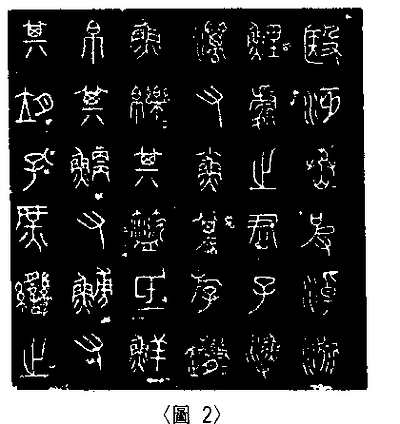 殹沔烝皮淖淵
鯉處之君子漁
澫又其斿
鱍其氐鮮
帛其鯾又鰟又
其孔庶臠之
〈圖 2〉